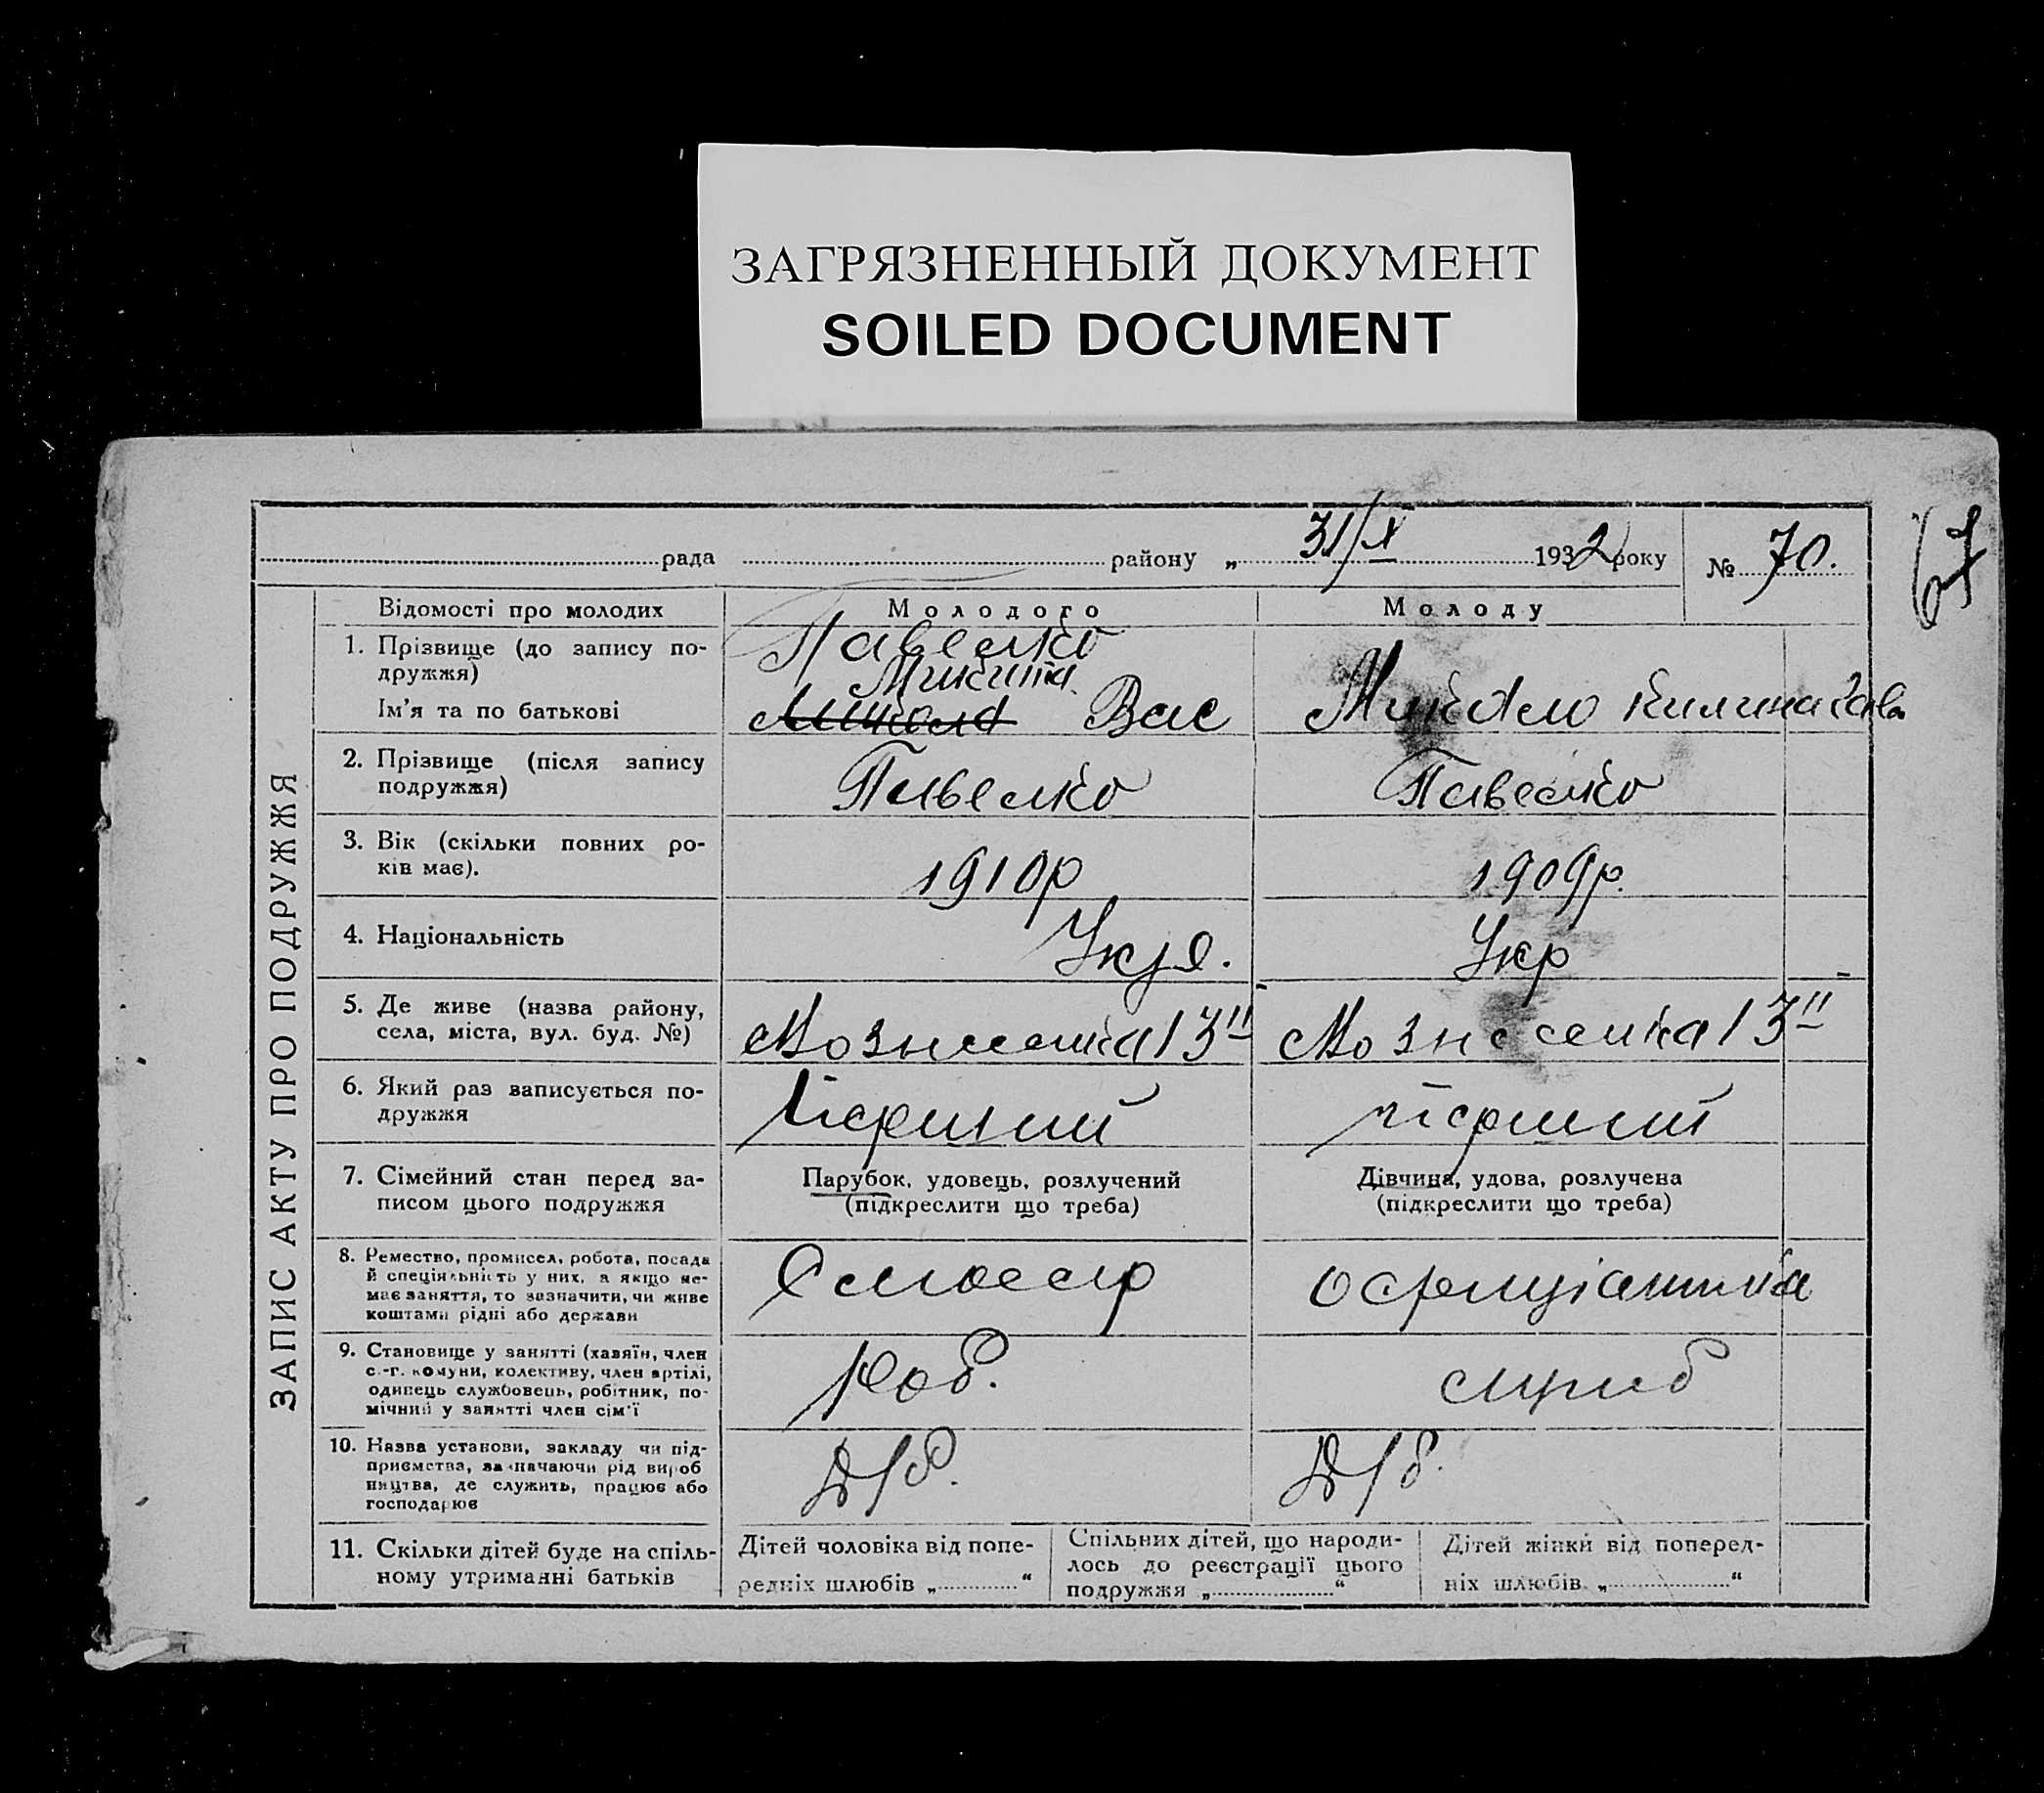 ЗАГРЯЗНЕННЫЙ ДОКУМЕНТ
SOILED DOCUMENT
рада района „ 31/X 1932 року № 70.
67
ЗАПИС АКТУ ПРО ПОДРУЖЖЯ
Відомості про молодих Молодого Молоду
1. Прізвище (до запису по-
дружжя)
Павелко
Микита
Ім'я та по батькові
Микола Вас
Килина
2. Прізвище (після запису
подружжя)
Павелко Павелко
3. Вік (скільки повних ро-
ків має).
1910р 1909р.
4. Національність
Укр. Укр
5. Де живе (назва району,
села, міста, вул. буд. №)
Вознесенка 13 Вознесенка 13
6. Який раз записується по-
дружжя
Перший перший
7. Сімейний стан перед за-
писом цього подружжя
Парубок, удовець, розлучений
(підкреслити що треба)
Дівчина, удова, розлучена
(підкреслити що треба)
8. Ремество, промисел, робота, посада
й спеціяльність у них, а якщо не-
має заняття, то зазначити, чи живе
коштами рідні або держави
Слюсар офіціантка
9. Становище у занятті (хазяїн, член
с.-г. комуни, колективу, член артілі,
одинець службовець, робітник, по-
мічний у занятті член сім'ї
Роб. служб
10. Назва установи, закладу чи під-
приємства, зазначаючи рід вироб
ництва, де служить, працює або
господарює
11. Скільки дітей буде на спіль-
ному утриманні батьків
Дітей чоловіка від попе-
редніх шлюбів „ “
Спільних дітей, що народи-
лось до реєстрації цього
подружжя „ “
Дітей жінки від поперед-
ніх шлюбів „ “